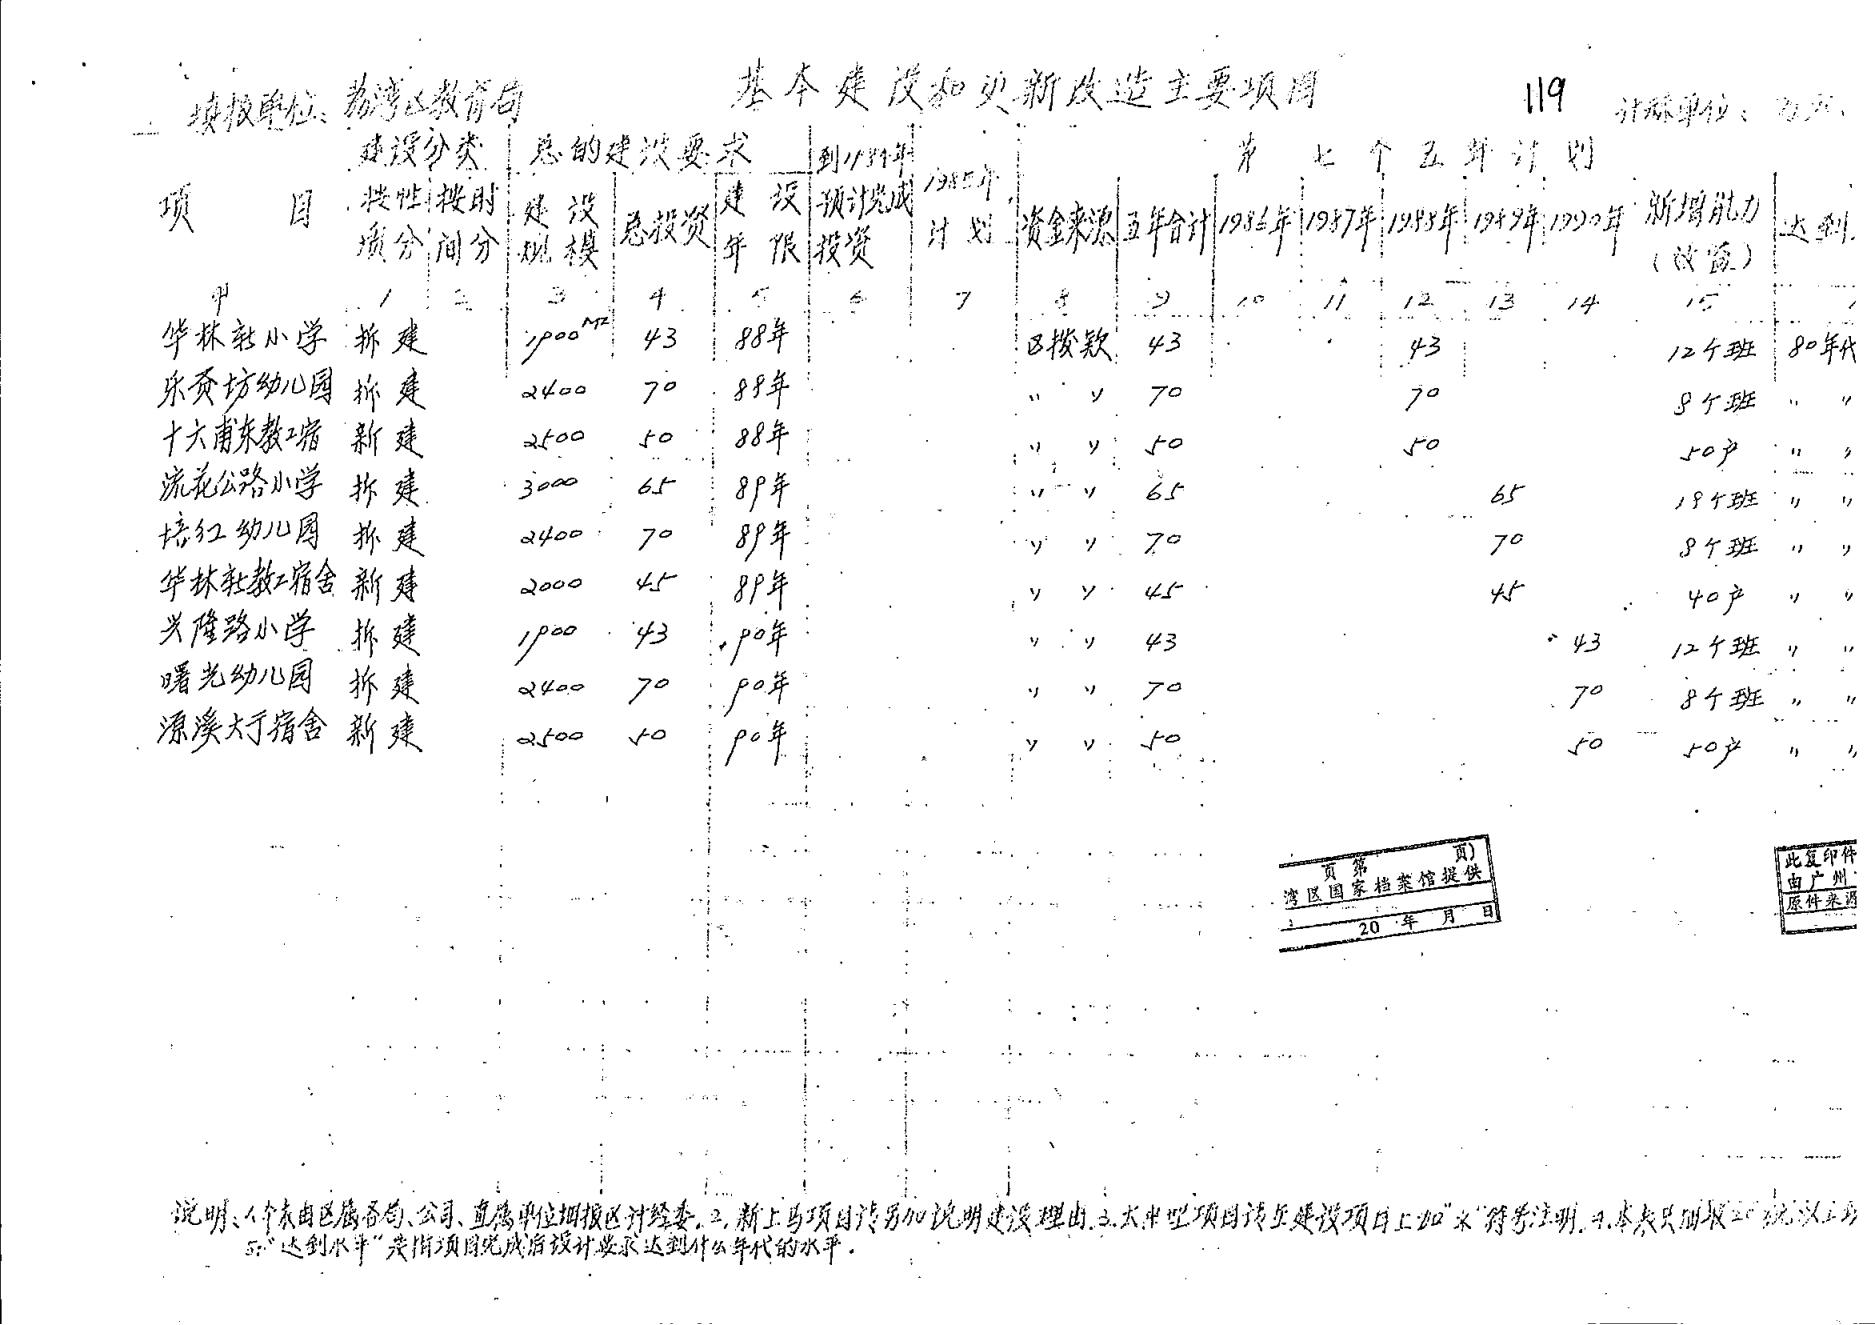 基本建设和更新改造主要项目
119
填报单位、荔湾区教育局
计算单位：万元
建设分类 总的建设要求 到1984年 1985年 第七个五年计划
项 目 按性质分 按时间分 建设规模 总投资 建设年限 预计完成投资 计划 资金来源 五年合计 1986年 1987年 1988年 1989年 1990年 新增能力(效益) 达到
甲 1 2 3 4 5 6 7 8 9 10 11 12 13 14 15
华林新小学 拆建 1900M2 43 88年 区拨款 43 43 12个班 80年代
乐贤坊幼儿园 拆建 2400 70 88年 〃 〃 70 70 8个班 〃 〃
十六甫东教工宿 新建 2500 50 88年 〃 〃 50 50 50户 〃 〃
流花公路小学 拆建 3000 65 89年 〃 〃 65 65 18个班 〃 〃
培红幼儿园 拆建 2400 70 89年 〃 〃 70 70 8个班 〃 〃
华林新教工宿舍 新建 2000 45 89年 〃 〃 45 45 40户 〃 〃
兴隆路小学 拆建 1900 43 90年 〃 〃 43 43 12个班 〃 〃
曙光幼儿园 拆建 2400 70 90年 〃 〃 70 70 8个班 〃 〃
源溪大于宿舍 新建 2500 50 90年 〃 〃 50 50 50户 〃 〃
页 第 页)
湾区国家档案馆提供
20 年 月 日
此复印件
由广州
原件来源
说明、1.个表由区属各局、公司、直属单位填报区计经委.2.新上马项目请另加说明建设理由.3.大中型项目请在建设项目上加"米"符号注明.4.本表只填报20万元以上项
5."达到水平"是指项目完成后设计要求达到什么年代的水平.